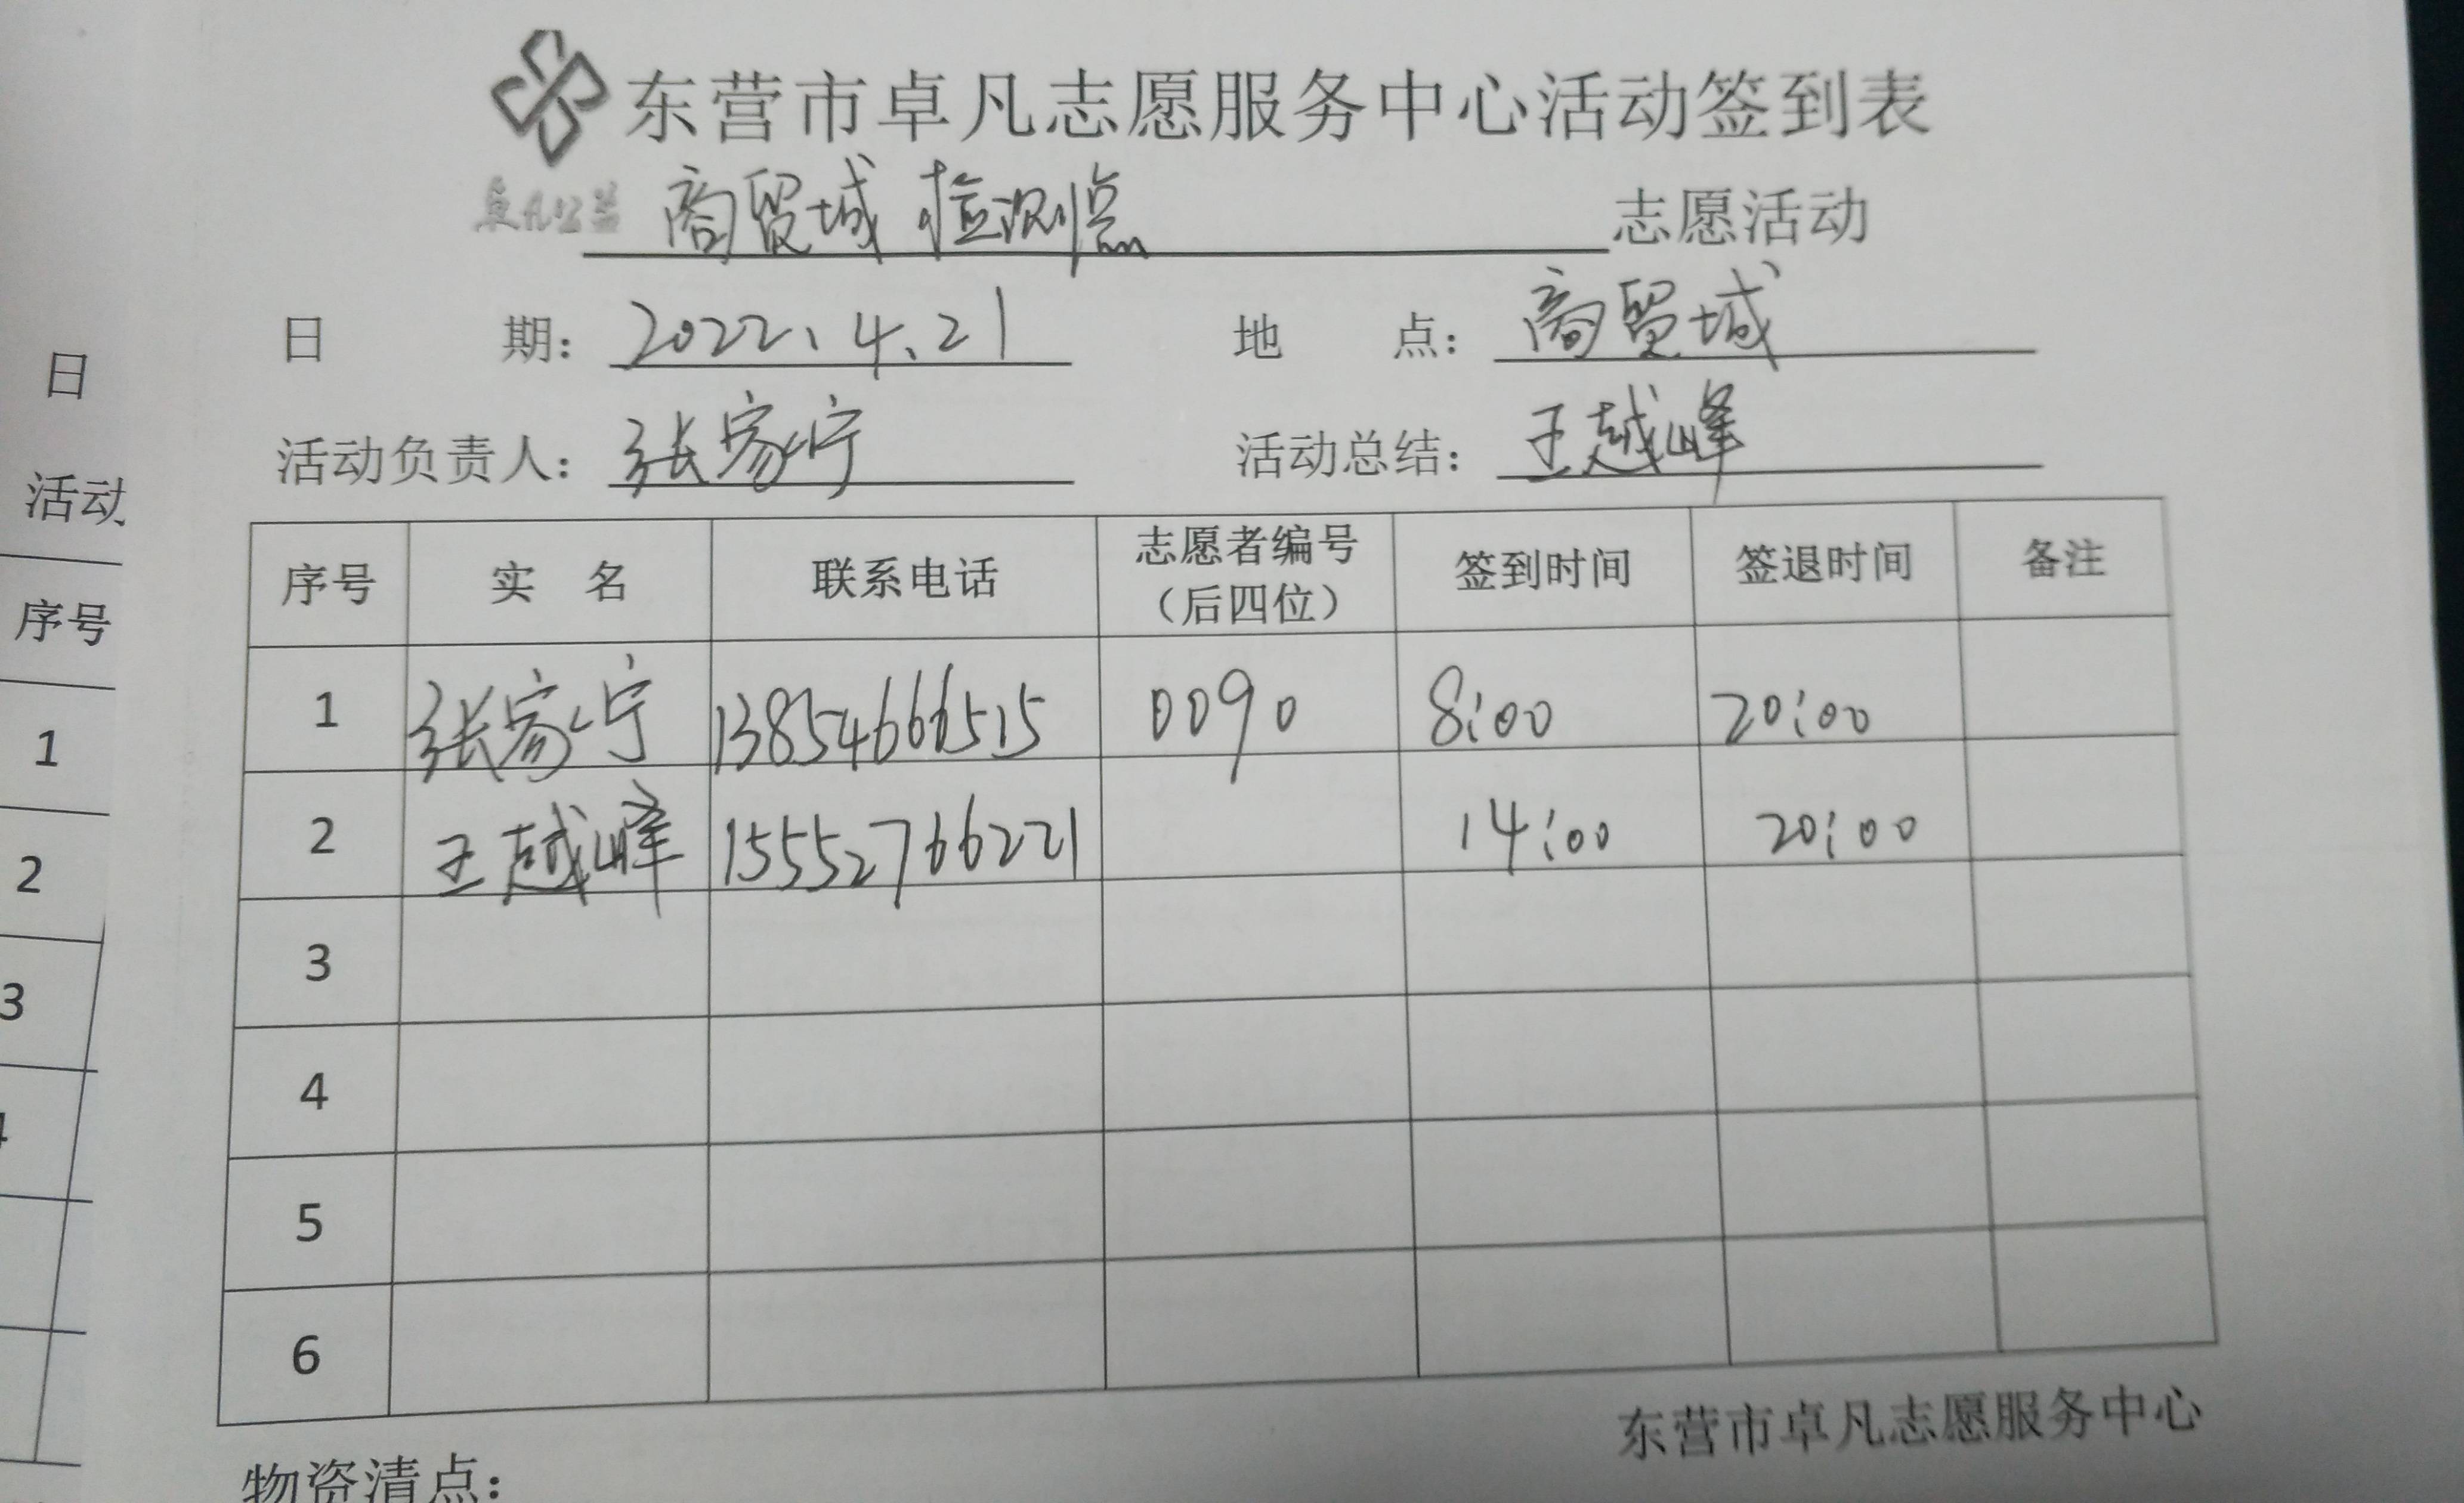 东营市卓凡志愿服务中心活动签到表
卓凡公益 商贸城 检测点 志愿活动
日 期：2022、4、21 地 点：商贸城
活动负责人：张家宁 活动总结：王越峰
序号 实 名 联系电话 志愿者编号（后四位） 签到时间 签退时间 备注
1 张家宁 13854666515 0090 8:00 20:00
2 王越峰 15552766221 14:00 20:00
3
4
5
6
东营市卓凡志愿服务中心
物资清点：
日
活动
序号
1
2
3